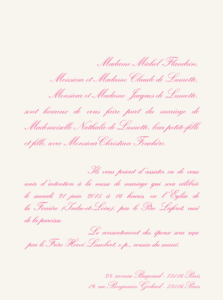 Madame Michel Flandrin,
Monsieur et Madame Claude de Lamotte,
Monsieur et Madame Jacques de Lamotte,
sont heureux de vous faire part du mariage de
Mademoiselle Nathalie de Lamotte, leur petite-fille
et fille, avec Monsieur Christian Fouchère.
Ils vous prient d'assister ou de vous
unir d'intention à la messe de mariage qui sera célébrée
le samedi 21 juin à 16 heures, en l'Église de
la (Indre-et-Loire), par le Père Lefort, curé
de la paroisse.
Le consentement des époux sera reçu
par le Frère Hervé cousin du marié.
avenue 75016 Paris
rue Benjamin Godard - 75016 Paris